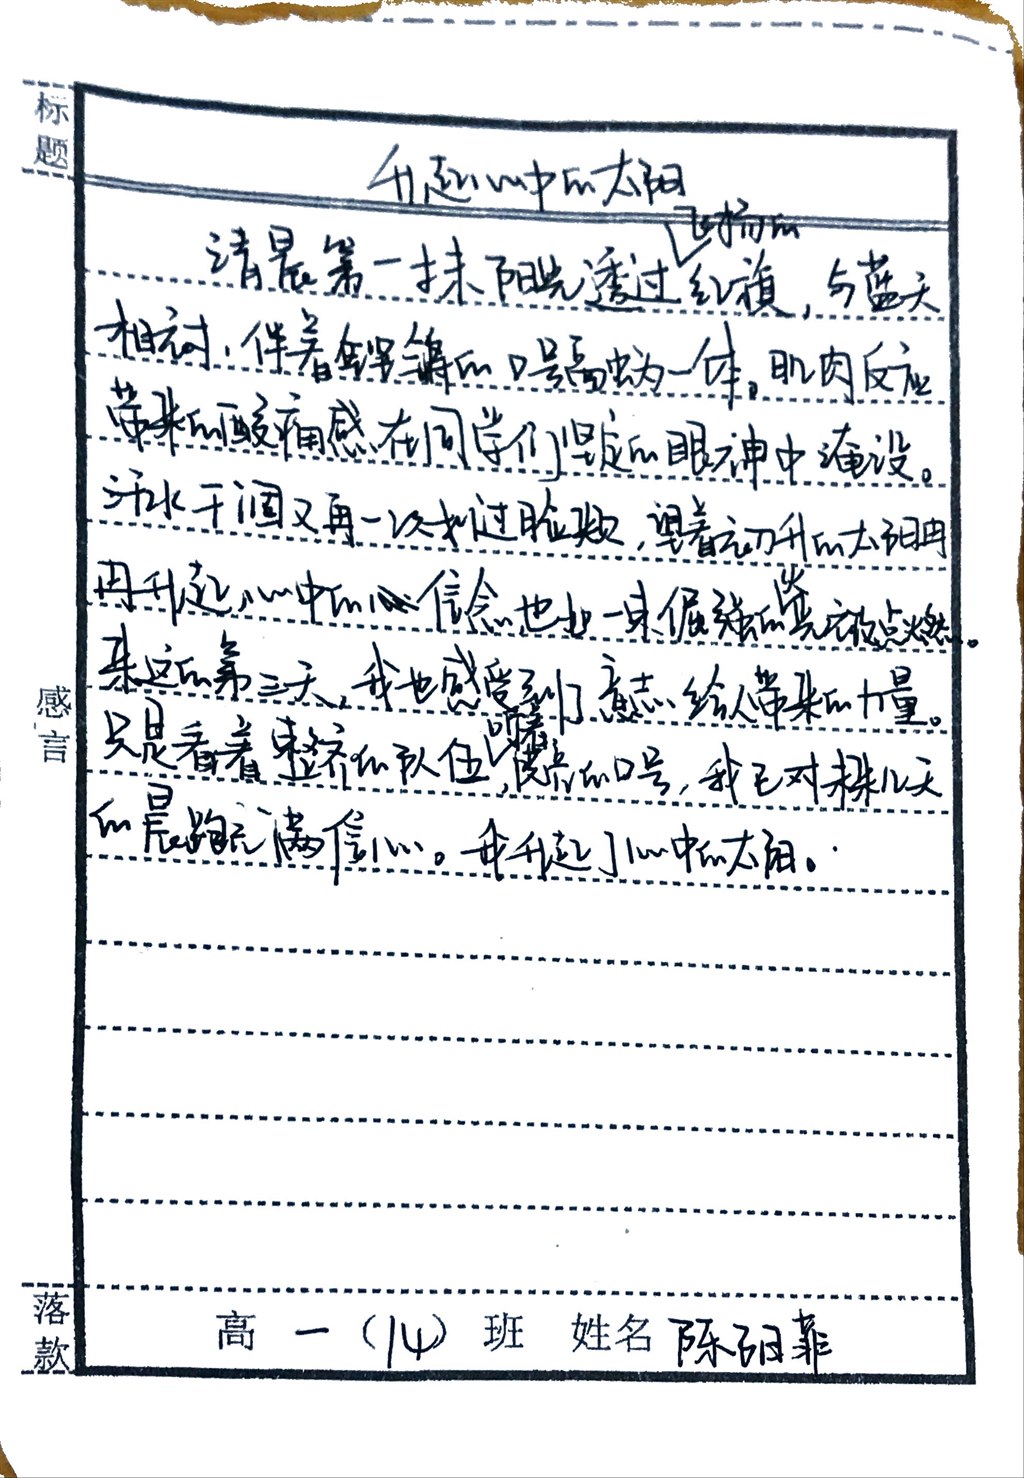 标题
升起心中的太阳
清晨第一抹阳光透过飞扬的红旗,与蓝天
相衬,伴着铿锵的口号高鸣一体。肌肉反应
带来的酸痛感在同学们坚定的眼神中淹没。
汗水干涸又再一次划过脸颊,望着初升的太阳冉
冉升起,心中的信念也如一束倔强的炎亮被点燃。
来这的第三天,我也感受到了意志给人带来的力量。
感言
只是看着整齐的队伍,喊着洪亮的口号,我已对未来几天
的晨跑充满信心。我升起了心中的太阳。
落款
高一(14)班 姓名 陈菲